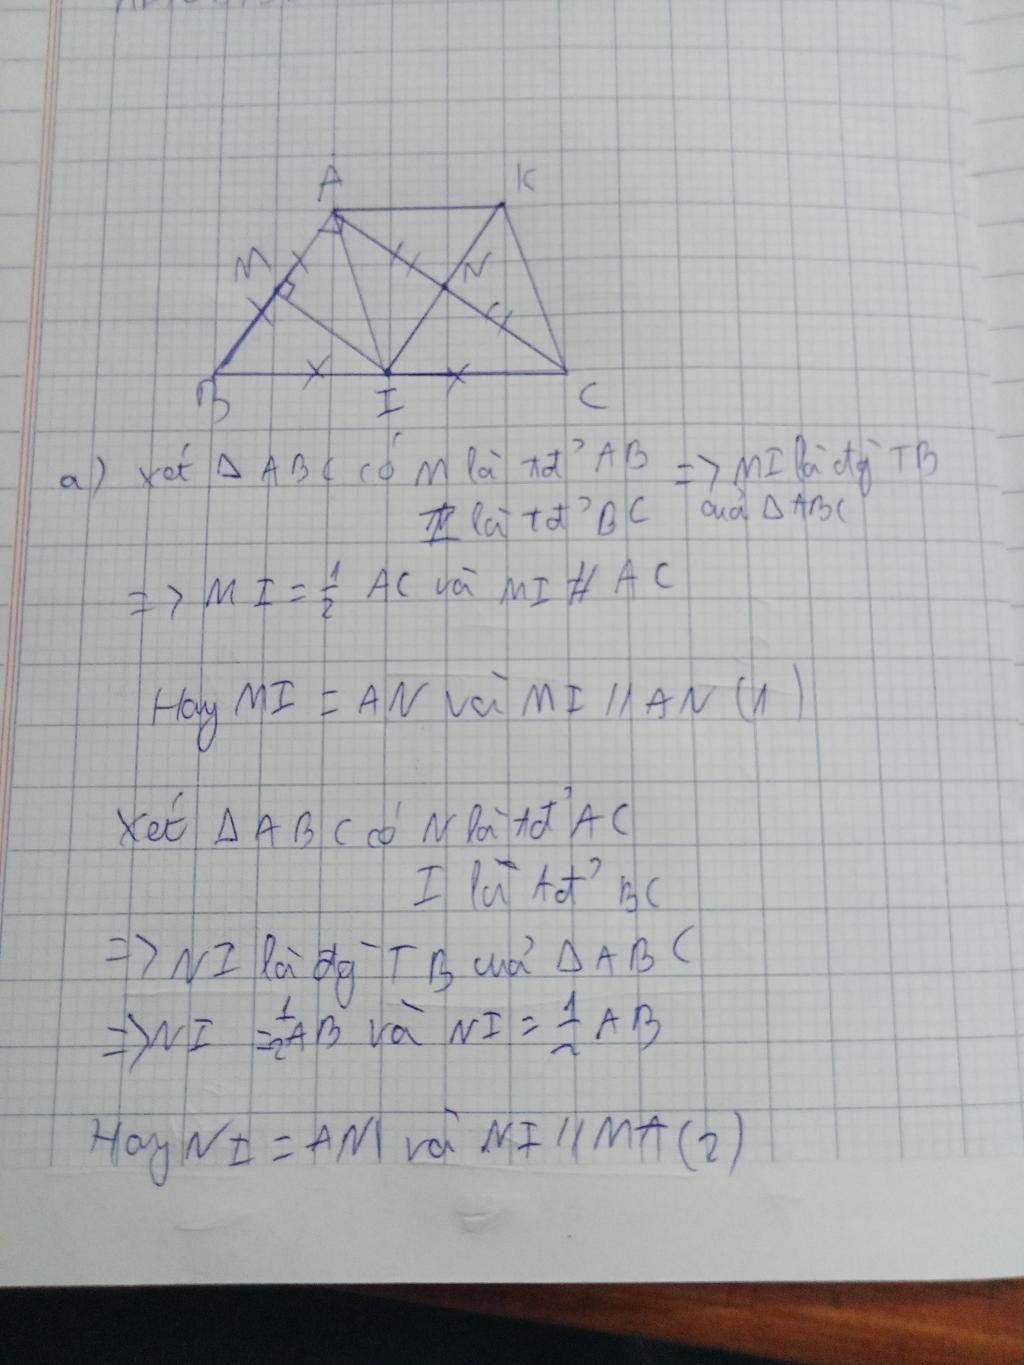 A K
M N
B I C
a) Xét Δ ABC có M là tđ' AB => MI là đg` TB
I là tđ' BC của Δ ABC
=> MI = 1/2 AC và MI // AC
Hay MI = AN và MI // AN (1)
Xét Δ ABC có N là tđ' AC
I là tđ' BC
=> NI là đg` TB của Δ ABC
=> NI = 1/2 AB và NI = 1/2 AB
Hay NI = AM và NI // MA (2)